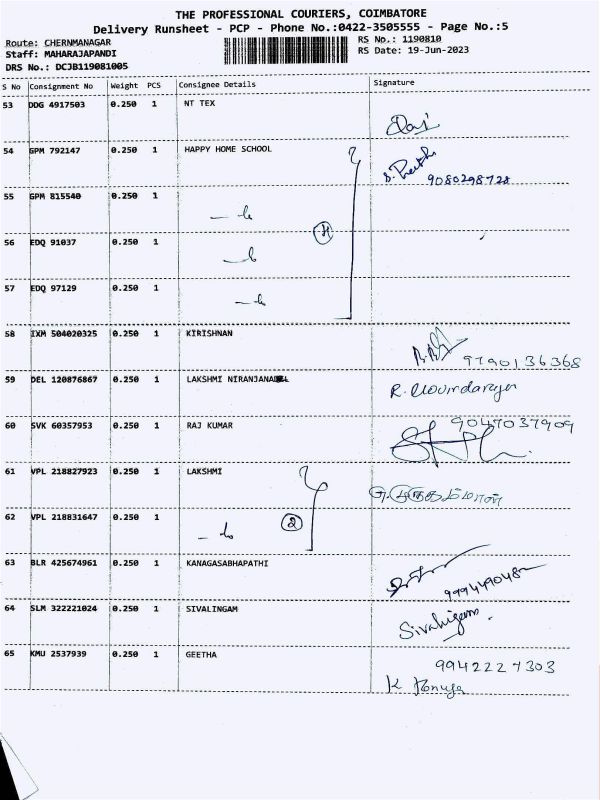 THE PROFESSIONAL COURIERS, COIMBATORE
Delivery Runsheet - PCP - Phone No.:0422-3505555 - Page No.:5
Route: CHERNMANAGAR
RS No.: 1190810
Staff: MAHARAJAPANDI
RS Date: 19-Jun-2023
DRS No.: DCJB119081005
S No Consignment No Weight PCS Consignee Details Signature
53 DDG 4917503 0.250 1 NT TEX
54 GPM 792147 0.250 1 HAPPY HOME SCHOOL
9080298728
55 GPM 815540 0.250 1
56 EDQ 91037 0.250 1
57 EDQ 97129 0.250 1
58 IXM 504020325 0.250 1 KIRISHNAN
9790136368
59 DEL 120876867 0.250 1 LAKSHMI NIRANJANA
60 SVK 60357953 0.250 1 RAJ KUMAR 9047037909
61 VPL 218827923 0.250 1 LAKSHMI
62 VPL 218831647 0.250 1
2
63 BLR 425674961 0.250 1 KANAGASABHAPATHI
64 SLM 322221024 0.250 1 SIVALINGAM
Sivalingam.
65 KMU 2537939 0.250 1 GEETHA
9942227303